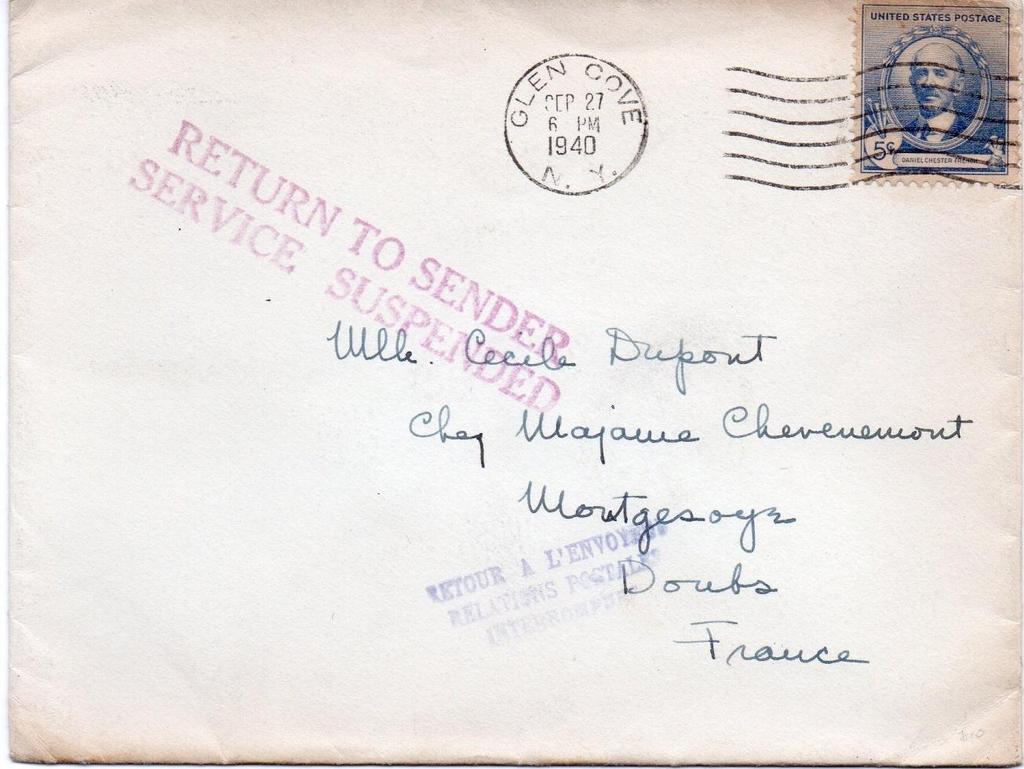 UNITED STATES POSTAGE
5¢
DANIEL CHESTER FRENCH
GLEN COVE
SEP 27
6 PM
1940
N. Y.
RETURN TO SENDER
SERVICE SUSPENDED
Mlle. Cecile Dupont
Chez Majame Chevenemont
Montgesoye
Doubs
France
RETOUR A L'ENVOYEUR
RELATIONS POSTALES
INTERROMPUES